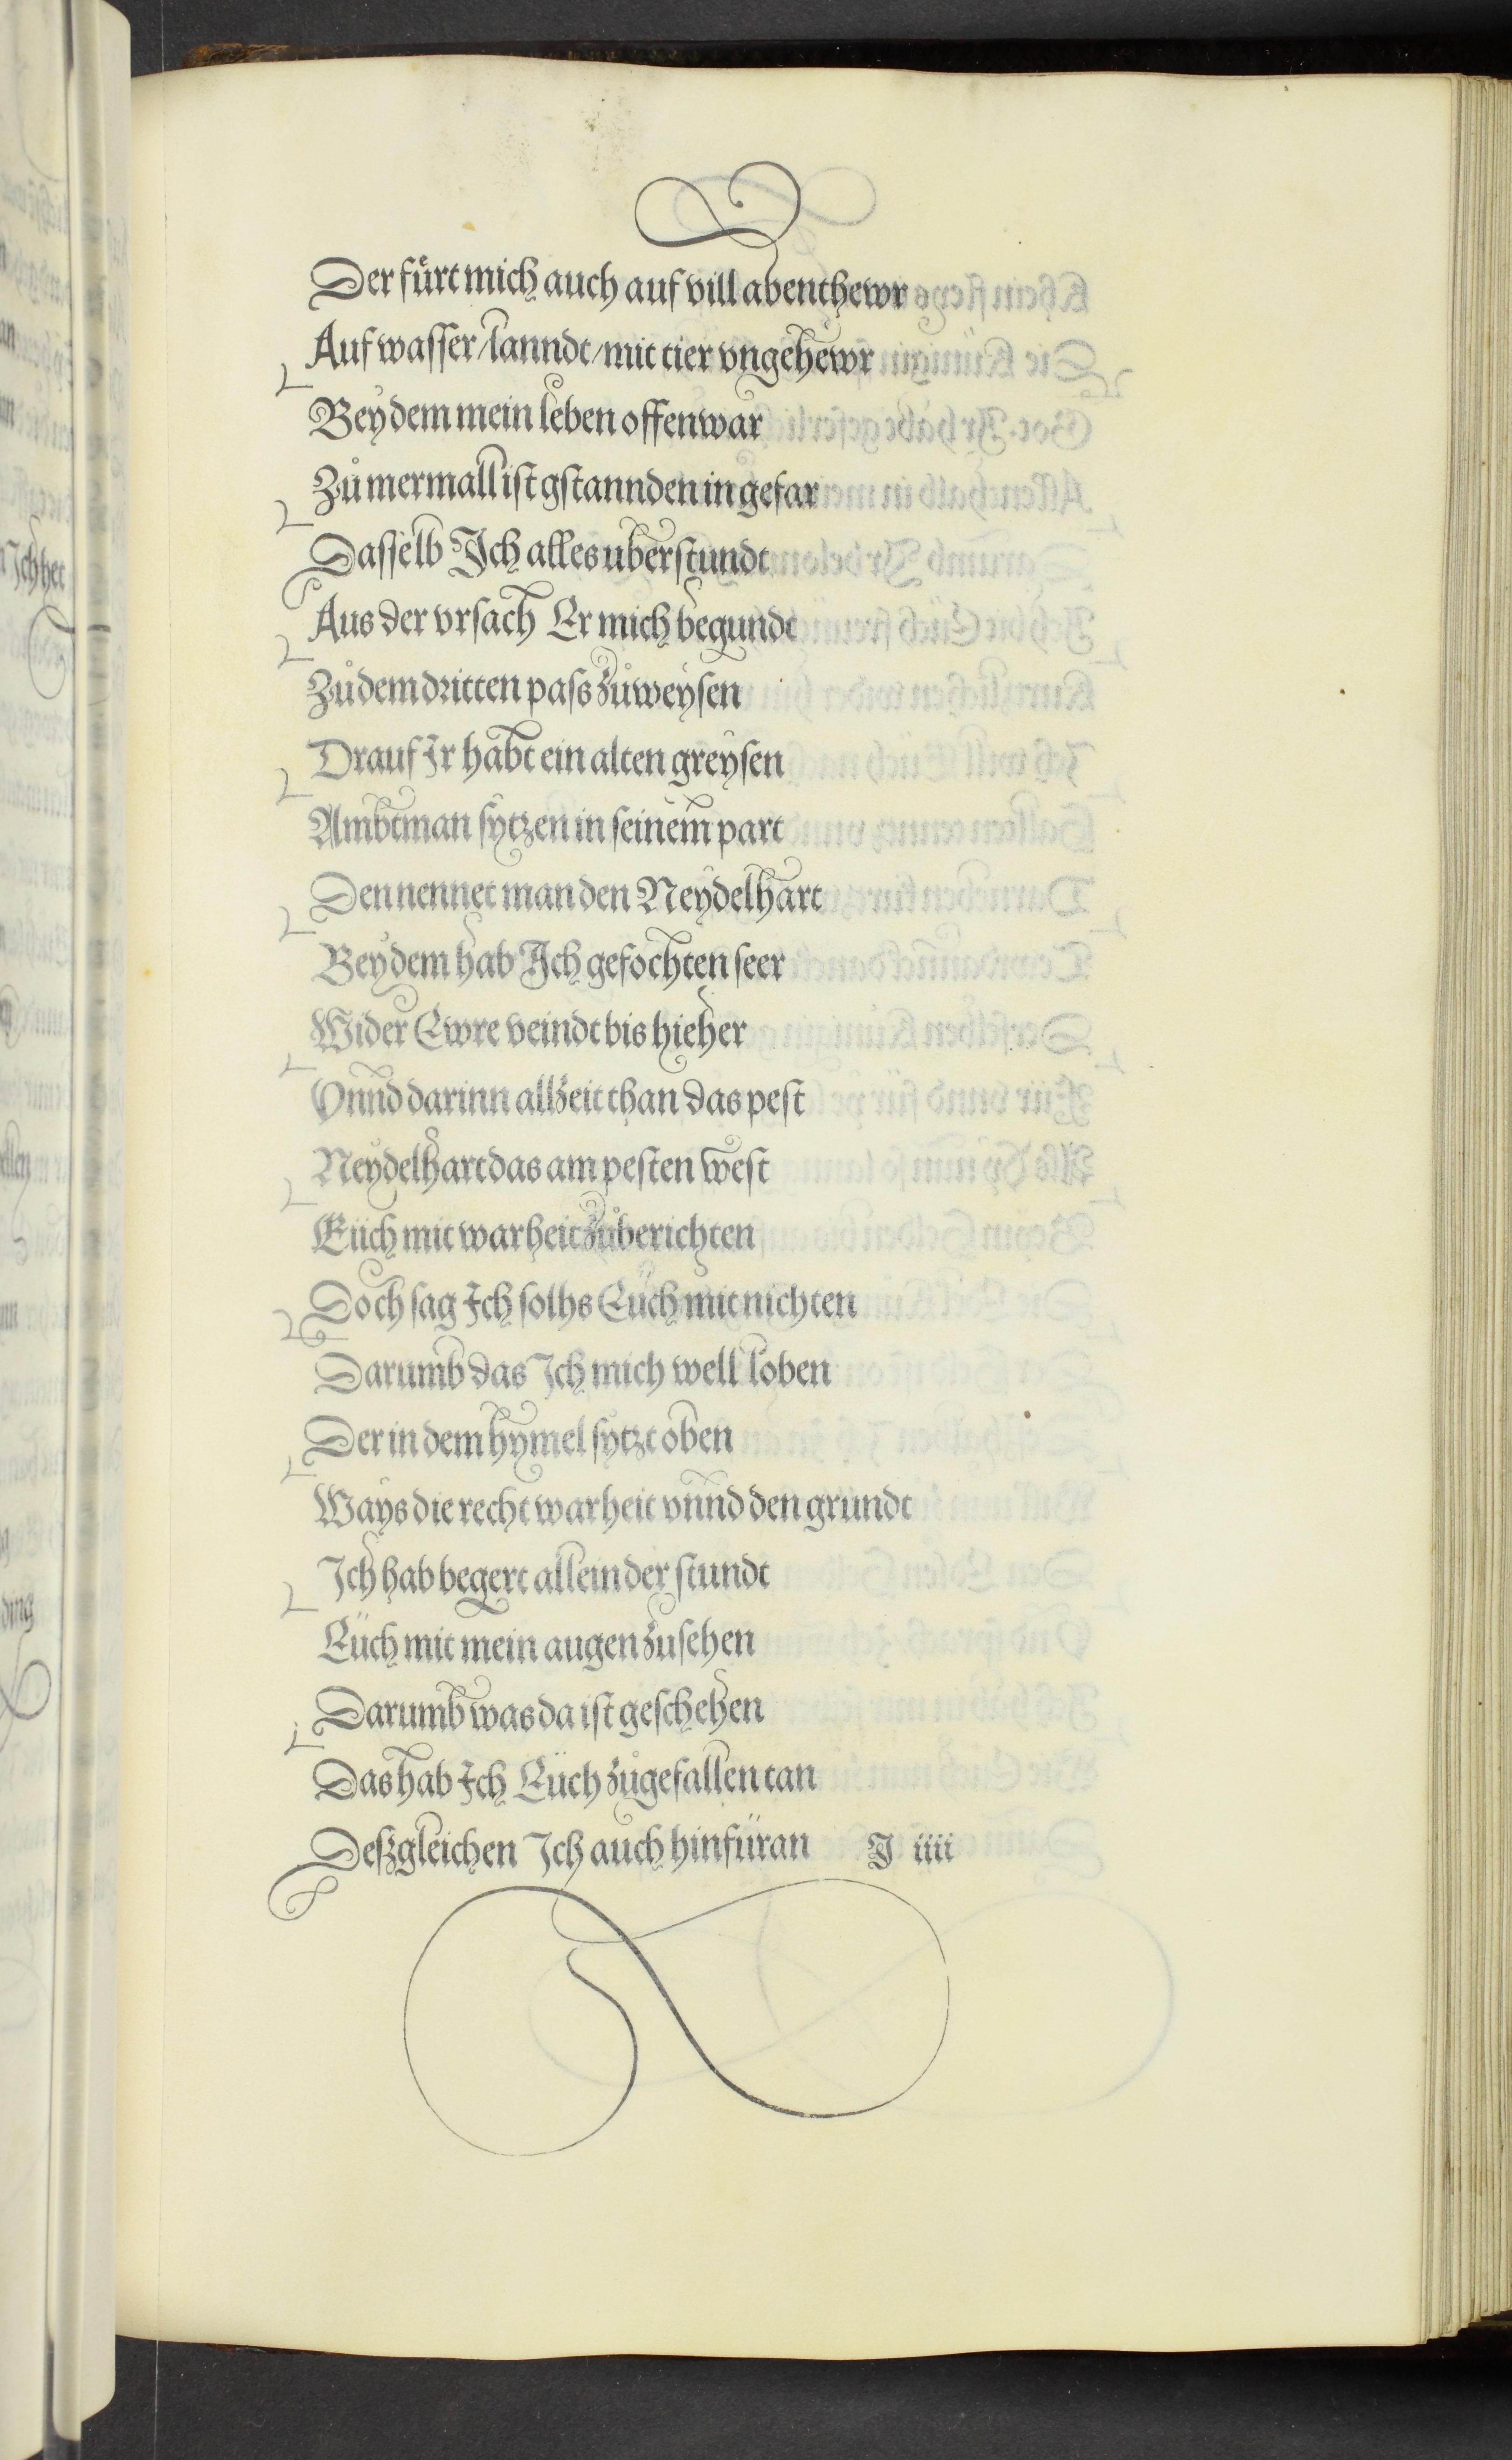 Der fůrt mich auch auf vill abenthewr
Auf wasser/lanndt/mit tier vngehewr
Bey dem mein leben offenwar
Zů mermall ist gstannden in gefar
Dasselb Ich alles uberstundt
Aus der vrsach Er mich begundt
Zů dem dritten pass zůweysen
Drauf Ir habt ein alten greysen
Ambtman sytzen in seinem part
Den nennet man den Neydelhart
Bey dem hab Ich gefochten seer
Wider Ewre veindt bis hieher
Vnnd darinn allzeit than das pest
Neydelhart das am pesten west
Eüch mit warheit zůberichten
Doch sag Ich solhs Eüch mit nichten
Darumb das Ich mich well loben
Der in dem hymel sytzt oben
Ways die recht warheit vnnd den grundt
Ich hab begert allein der stundt
Eüch mit mein augen zusehen
Darumb was da ist geschehen
Das hab Ich Eüch zůgefallen tan
Deßgleichen Ich auch hinfüran I iiii